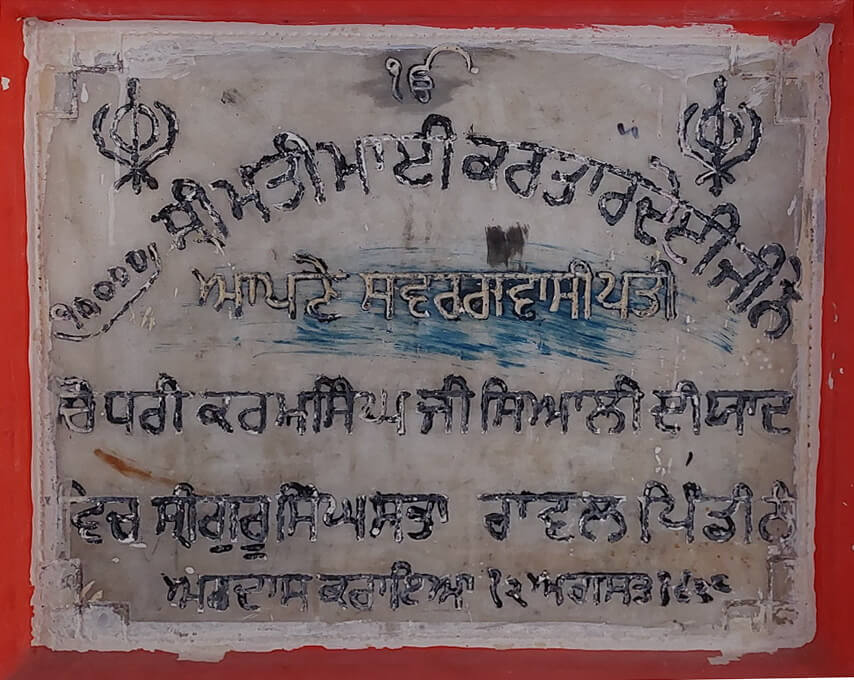 ੴ
ਸ਼੍ਰੀ ਮਤੀ ਮਾਈ ਕਰਤਾਰ ਦੇਈ ਜੀ ਨੇ
ਆਪਣੇ ਸਵਰਗਵਾਸੀ ਪਤੀ
ਚੌਧਰੀ ਕਰਮ ਸਿੰਘ ਜੀ ਸਿਆਲੀ ਦੀ ਯਾਦ
ਵਿਚ ਸ੍ਰੀ ਗੁਰੂ ਸਿੰਘ ਸਭਾ ਰਾਵਲ ਪਿੰਡੀ ਨੂੰ
ਅਰਦਾਸ ਕਰਾਇਆ ੧੨ ਅਗਸਤ